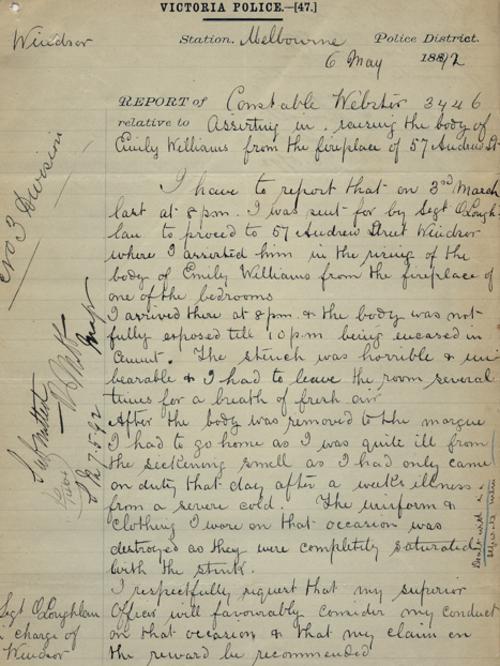 VICTORIA POLICE.—[47.]
Windsor Station. Melbourne Police District.
6 May 1892
REPORT of Constable Webster 3446
relative to Assisting in raising the body of
Emily Williams from the fireplace of 57 Andrew St
I have to report that on 3rd March
last at 8 pm. I was sent for by Segt O'Lough
lan to proceed to 57 Andrew Street Windsor
where I assisted him in the rising of the
body of Emily Williams from the fireplace of
one of the bedrooms
I arrived there at 8 pm & the body was not
fully exposed till 10 p.m being encased in
Cement. The stench was horrible & un
bearable & I had to leave the room several
times for a breath of fresh air
After the body was removed to the morgue
I had to go home as I was quite ill from
the sickening smell as I had only came
on duty that day after a week's illness
from a severe cold. The uniform &
clothing I wore on that occasion was
destroyed as they were completely saturated
with the stink.
I respectfully request that my superior
Officer will favourably consider my conduct
on that occasion & that my claim on
the reward be recommended
No 3 Division
Submitted
7.5.92
Segt O'Loughlan
in charge of
Windsor